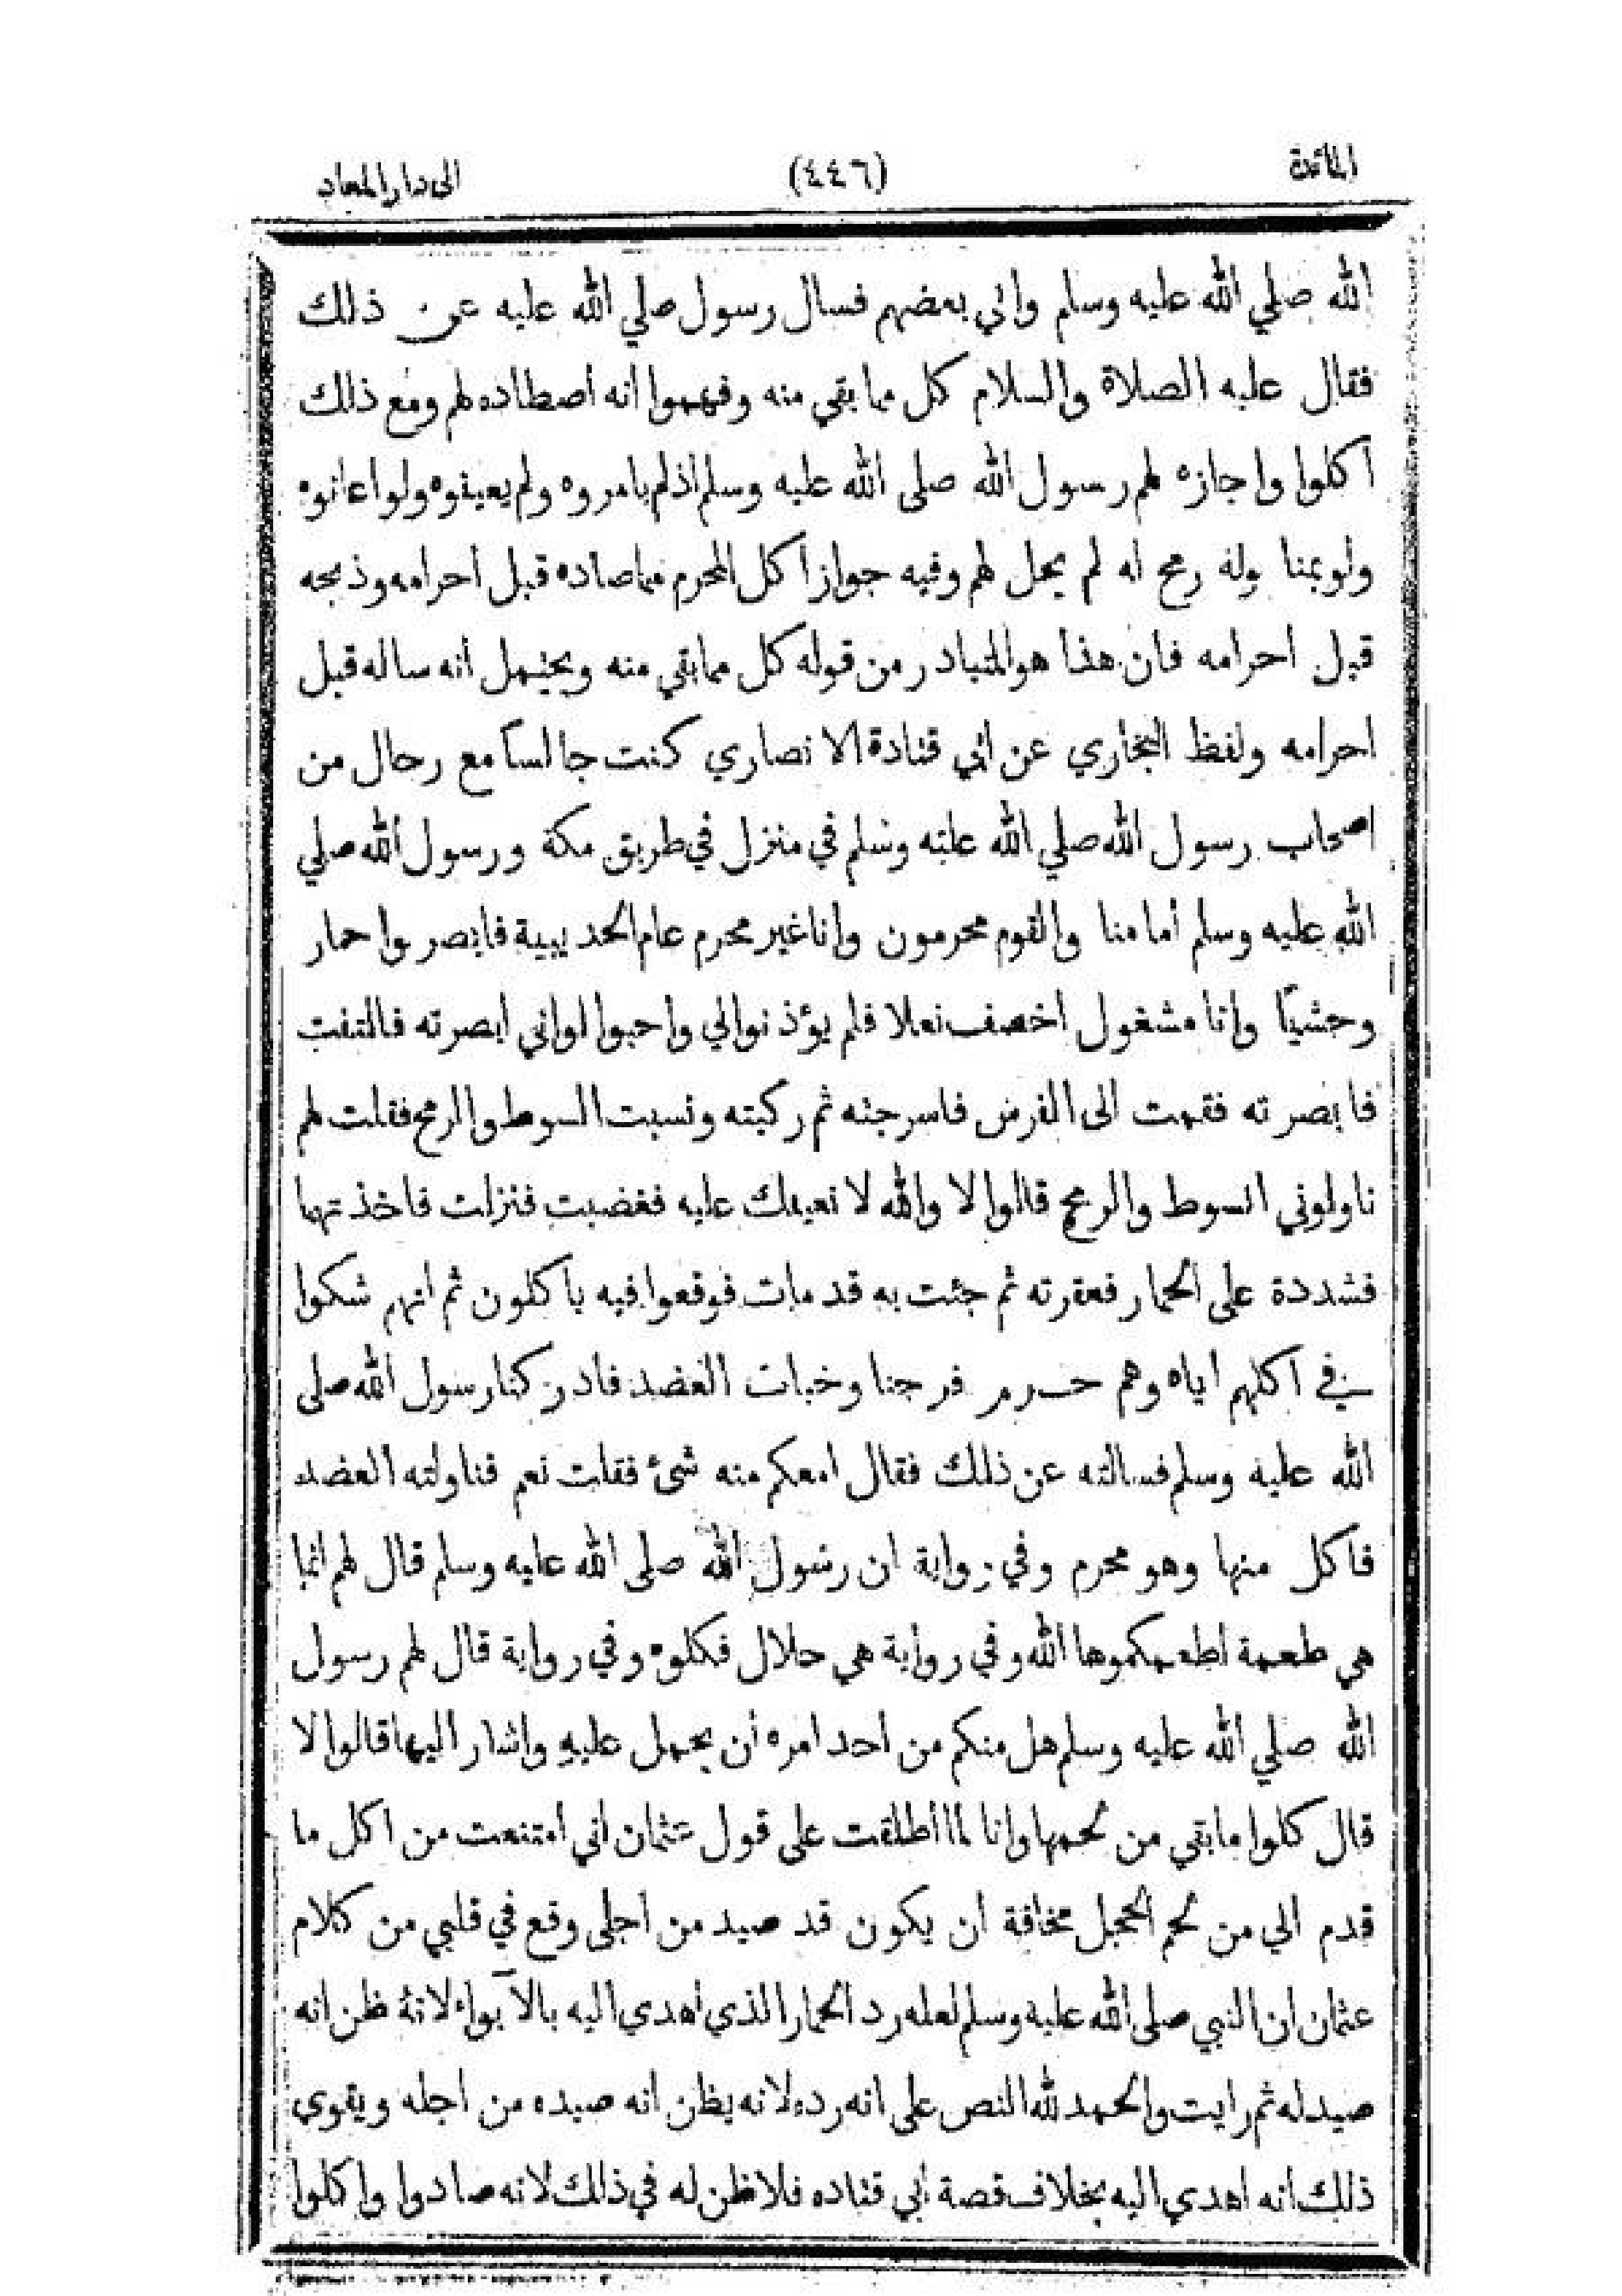 المائدة (٤٤٦) الى دار المعاد
الله صلي الله عليه وسلم وابي بعضهم فسال رسول صلي الله عليه عن ذلك
فقال عليه الصلاة والسلام كل مما بقي منه وفهموا أنه أصطاده لهم ومع ذلك
أكلوا واجازه لهم رسول الله صلى الله عليه وسلم اذ لم يامروه ولم يعينوه ولو اعانوه
ولو بمنا ولة رمح له لم يحل لهم وفيه جواز أكل المحرم مما صاده قبل أحرامه وذبحه
قبل أحرامه فان هذا هو المتبادر من قوله كل مما بقي منه ويحتمل أنه ساله قبل
احرامه ولفظ البخاري عن ابي قتادة الانصاري كنت جالساً مع رحال من
اصحاب رسول الله صلي الله عليه وسلم في منزل في طريق مكة ورسول الله صلي
الله عليه وسلم أمامنا والقوم محرمون وانا غير محرم عام الحديبية فابصروا حمار
وحشيًا وانا مشغول أخصف نعلا فلم يؤذنوالي وأحبوا لواني ابصرته فالتفت
فابصرته فقمت الى الفرس فاسرجته ثم ركبته ونسيت السوط والرمح فقلت لهم
ناولوني السوط والرمح قالوا لا والله لا نعينك عليه فغضبت فنزلت فاخذتهما
فشددة على الحمار فعقرته ثم جئت به قد مات فوقعوا فيه ياكلون ثم انهم شكوا
في أكلهم اياه وهم حرم فرحنا وخبات العضد فادركنا رسول الله صلى
الله عليه وسلم فسالته عن ذلك فقال امعكم منه شئ فقلت نعم فناولته العضد
فاكل منها وهو محرم وفي رواية ان رسول الله صلى الله عليه وسلم قال لهم انما
هي طعمة أطعمكموها الله وفي رواية هي حلال فكلوه وفي رواية قال لهم رسول
الله صلي الله عليه وسلم هل منكم من أحد امره أن يحمل عليه واشار اليها قالوا لا
قال كلوا ما بقي من لحمها وانا لما أطلعت على قول عثمان اني أمتنعت من اكل ما
قدم الي من لحم الحجل مخافة أن يكون قد صيد من أجلى وقع في قلبي من كلام
عثمان ان النبي صلى الله عليه وسلم لعله رد الحمار الذي أهدي اليه بالآبواء لانه ظن انه
صيد له ثم رايت والحمد لله النص على انه رده لانه يظن انه صيده من اجله ويقوي
ذلك انه اهدي اليه بخلاف قصة أبي قتاده فلا ظن له في ذلك لانه صادوا واكلوا